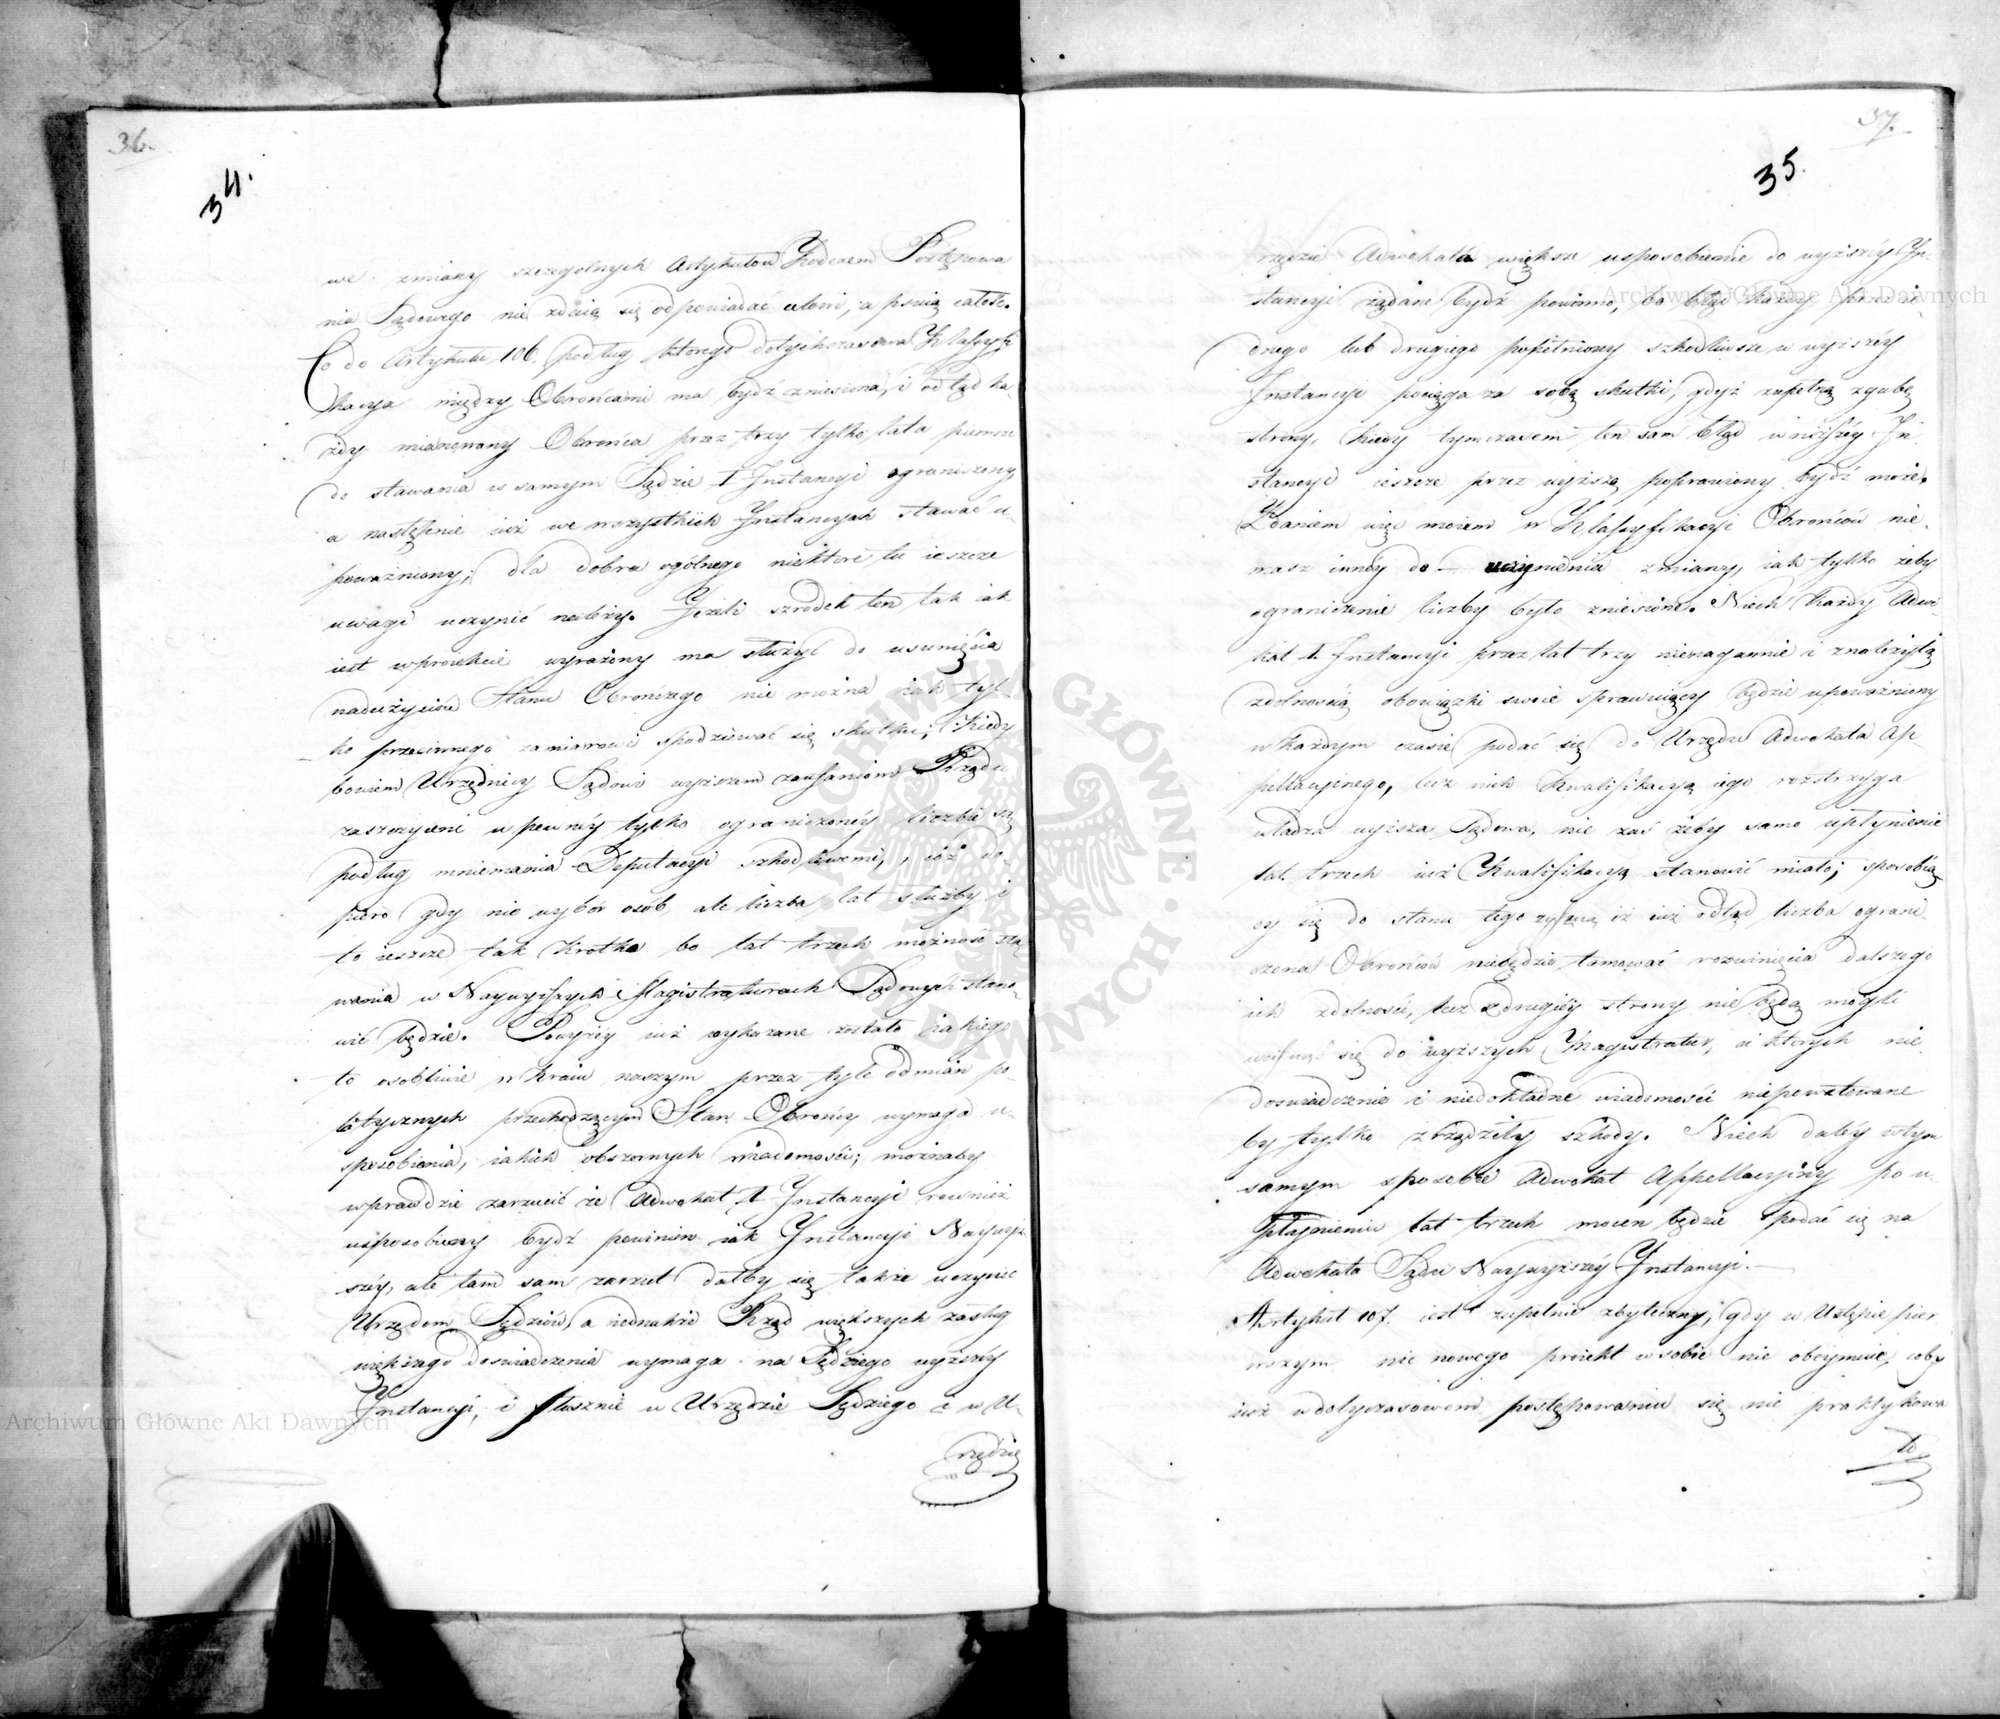 36.
34.
we zmiany szczegolnych Artykułow Kodexem Postępowa
nia Sądowego nie zdaią się odpowiadać celowi, a psuią całość.
Co do Artykułu 106. podług ktorego dotychczasowa Klassyfi
kacya między Obrońcami ma bydź zniesiona, i odtąd ka-
żdy mianowany Obrońca przez trzy tylko lata pierwsze
do stawania w samym Sądzie I Instancyi ograniczony,
a następnie iuż we wszystkich Instancyach stawać u-
poważniony; dla dobra ogólnego niektóre tu ieszcze
uwagi uczynić należy. Jeżeli szrodek ten tak iak
iest w proiekcie wyrażony ma służyć do usunięcia
nadużyciów Stanu Obrończego nie można iak tyl-
ko przeciwnego zamiarowi spodziewać się skutku; kiedy
bowiem Urzędnicy Sądowi wyższem zaufaniem Rządu
zaszczyceni w pewnéy tylko ograniczonéy liczbie są
podług mniemania Deputacyi szkodliwemi, cóż do-
piero gdy nie wybór osób, ale liczba lat służby i
to ieszcze tak krotka bo lat trzech możność sta
wania w Naywyższych Magistraturach Sądowych stano-
wić będzie. Powyżéy iuż wykazane zostało iakiego
to osobliwie w kraiu naszym przez tyle odmian po-
litycznych przechodzącym Stan Obrońcy wymaga u-
sposobienia, iakich obszernych wiadomości; możnaby
wprawdzie zarzucić że Adwokat I Instancyi rownież
usposobiony bydź powinien iak Instancyi Naywyż
széy, ale tam sam zarzut dałby się także uczynić
Urzędom Sędziów, a iednakże Rząd większych zasług
większego doswiadczenia wymaga na Sędziego wyższéy
Instancyi, i słusznie w Urzędzie Sędziego i w U-
rzędzie
37.
35.
rzędzie Adwokata większe usposobienie do wyższéy In-
stancyi żądane bydź powinno, bo błąd każdy przez ie-
dnego lub drugiego popełniony szkodliwsze w wyższéy
Instancyi pociąga za sobą skutki, gdyż zupełną zgubę
strony, kiedy tymczasem ten sam błąd w niższéy In
stancyi ieszcze przez wyższą poprawiony bydź może.
Zdaniem więc moiem w Klassyfikacyi Obrońców nie-
masz innéy do uczynienia zmiany, iak tylko żeby
ograniczenie liczby było zniesione. Niech każdy Adwo
kat I. Instancyi przez lat trzy nienagannie i z należytą
zdolnością obowiązki swoie sprawuiący będzie upoważniony
w każdym czasie podać się do Urzędu Adwokata Ap-
pellacyinego, lecz niech Kwalifikacyą iego rozstrzyga
władza wyższa Sądowa, nie zaś żeby samo upłynienie
lat trzech iuż Kwalifikacyą stanowić miało; sposobią
cy się do stanu tego zyskuią iż iuż odtąd liczba ograni-
czona Obrońców niebędzie tamować rozwinięcia dalszego
ich zdolności, lecz z drugiéy strony nie będą mogli
wcisnąć się do wyższych Magistratur, w ktorych nie
doswiadczenie i niedokładne wiadomości niepowetowane
by tylko zrządziły szkody. Niech daléy w tym
samym sposobie Adwokat Appellacyiny po u-
płynieniu lat trzech mocen będzie podać się na
Adwokata Sądu Naywyższéy Instancyi. —
Artykuł 107. iest zupełnie zbyteczny, gdy w Ustępie pier
wszym nic nowego proiekt w sobie nie obeymuie, coby
iuż w dotychczasowem postępowaniu się nie praktykowa
ło
Archiwum Główne Akt Dawnych
Archiwum Główne Akt Dawnych
ARCHIWUM GŁÓWNE AKT DAWNYCH